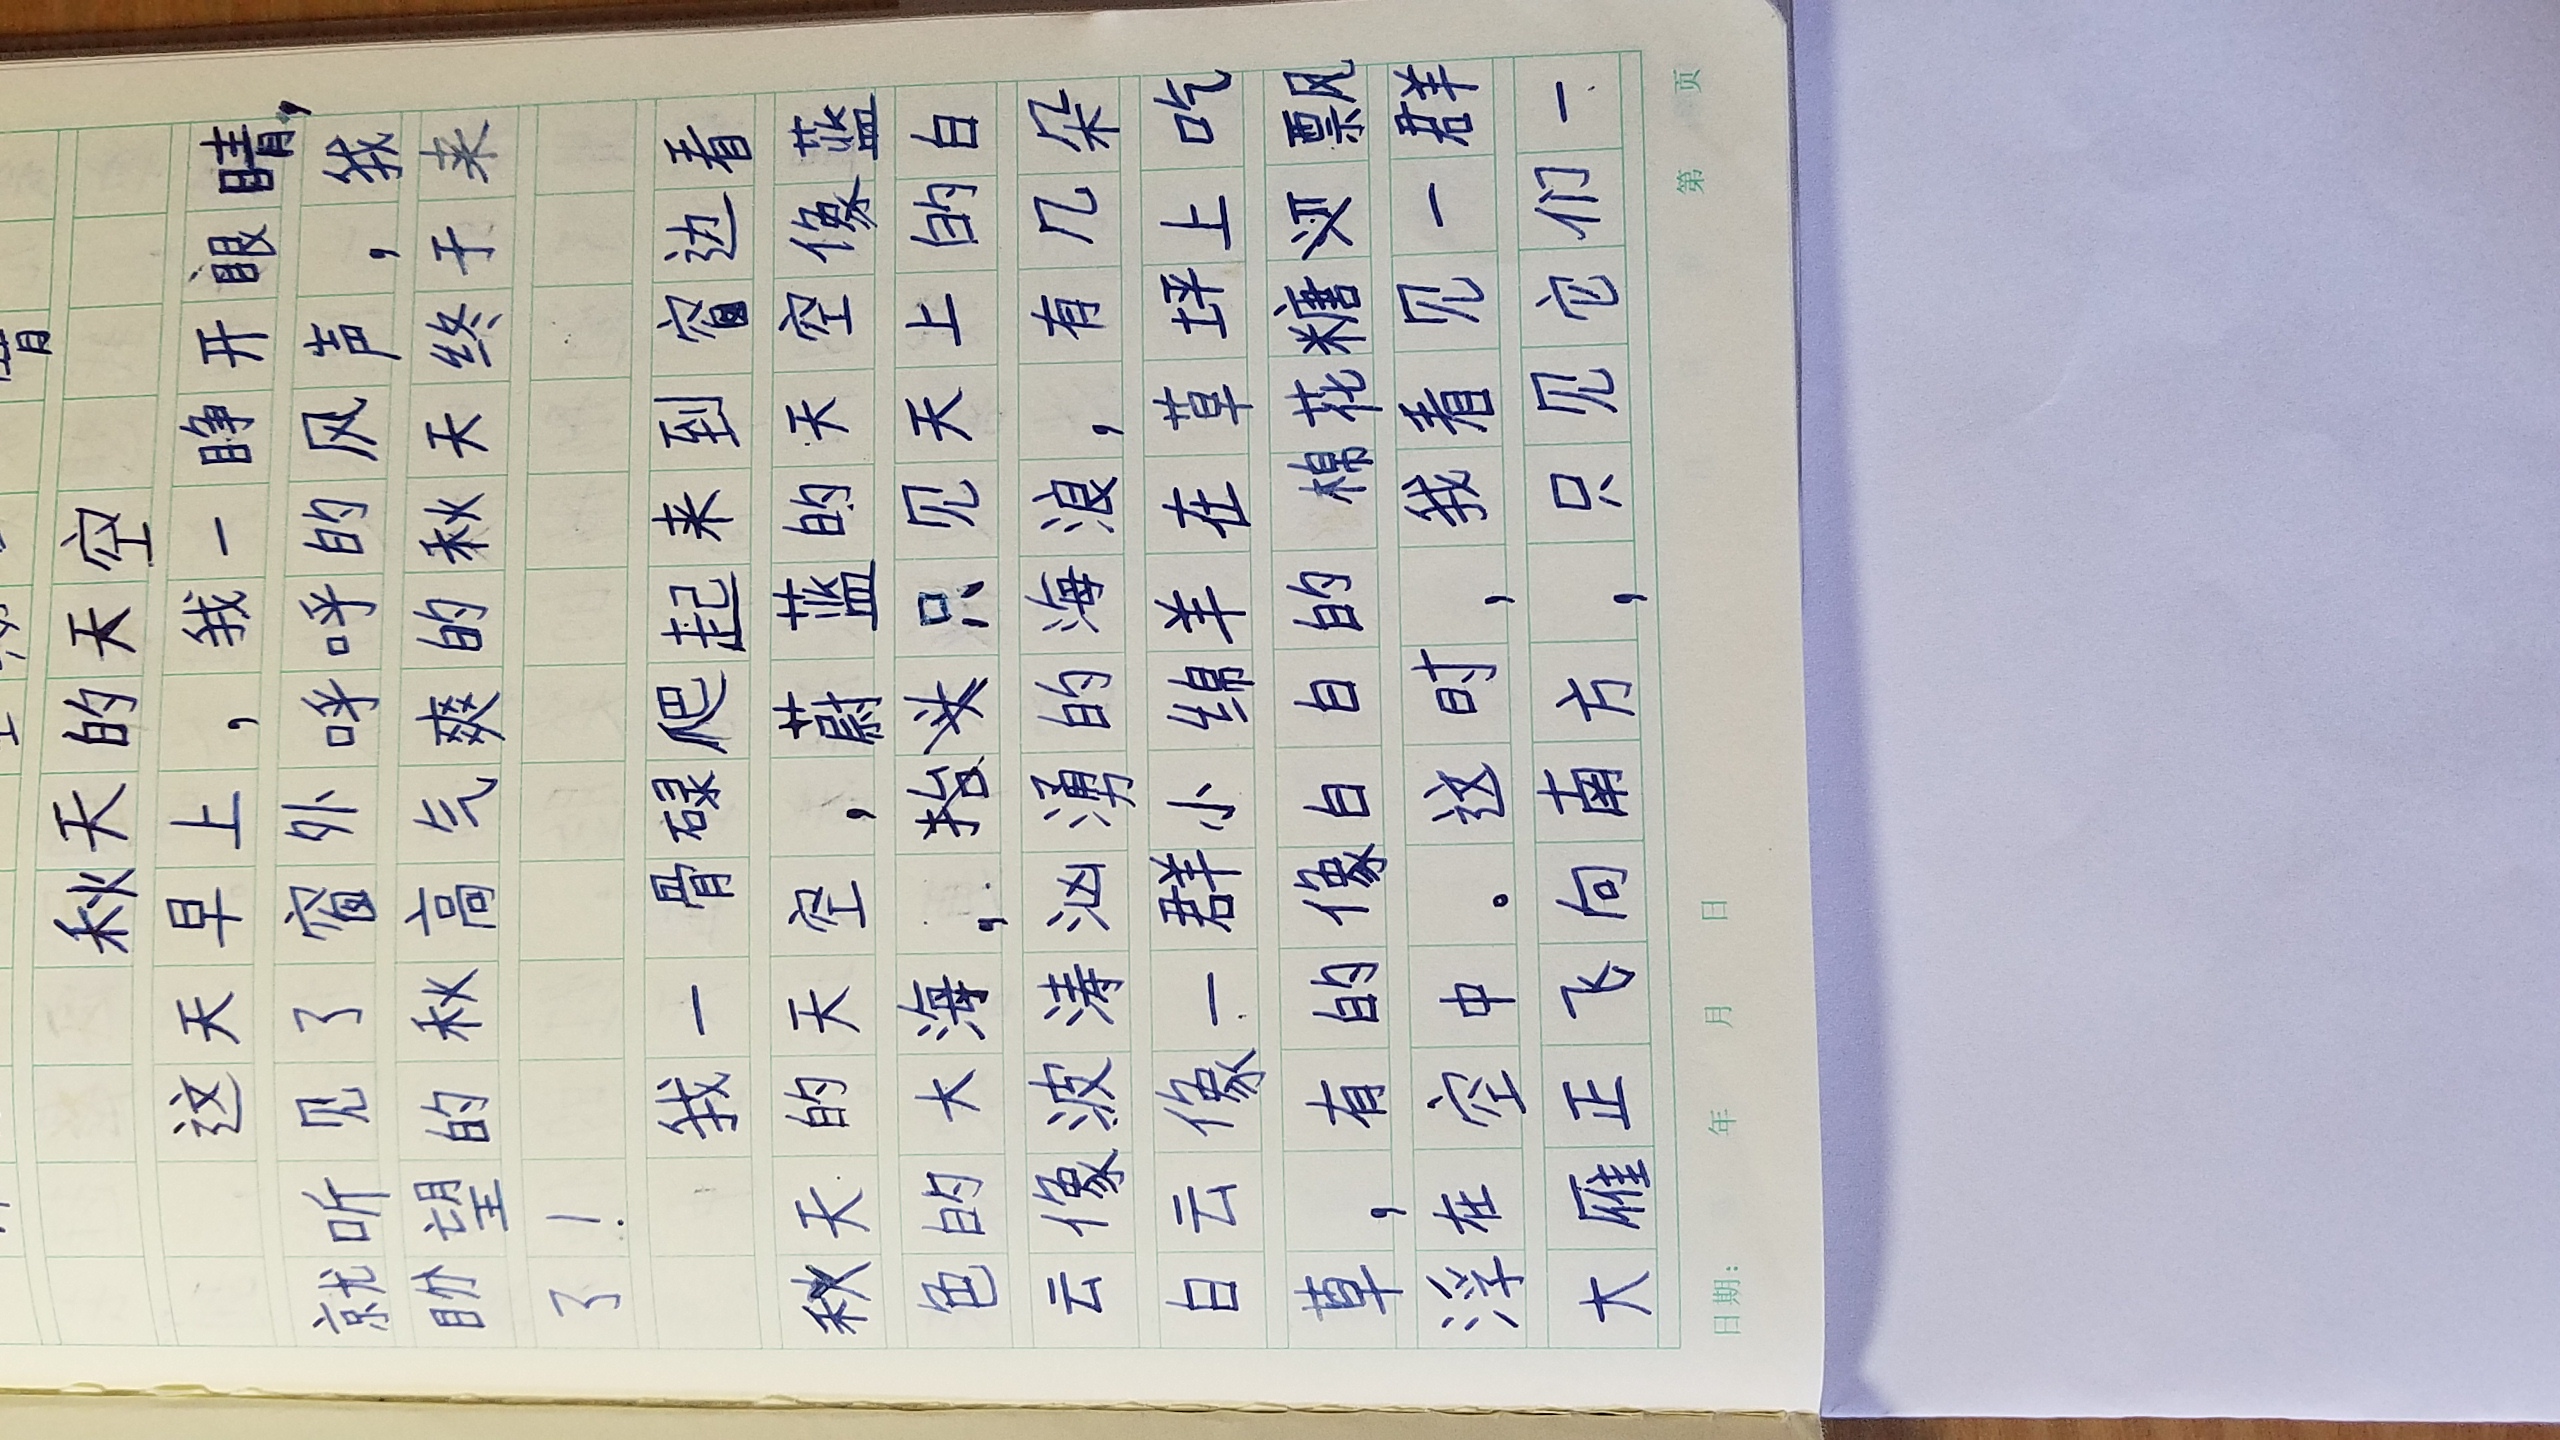 秋天的天空
这天早上，我一睁开眼睛，
就听见了窗外呼呼的风声，我
盼望的秋高气爽的秋天终于来
了！
我一骨碌爬起来到窗边看
秋天的天空，蔚蓝的天空像蓝
色的大海，抬头只见天上的白
云像波涛汹涌的海浪，有几朵
白云像一群小绵羊在草坪上吃
草，有的像白白的棉花糖飘
浮在空中。这时，我看见一群
大雁正飞向南方，只见它们一
日期： 年 月 日 第 页